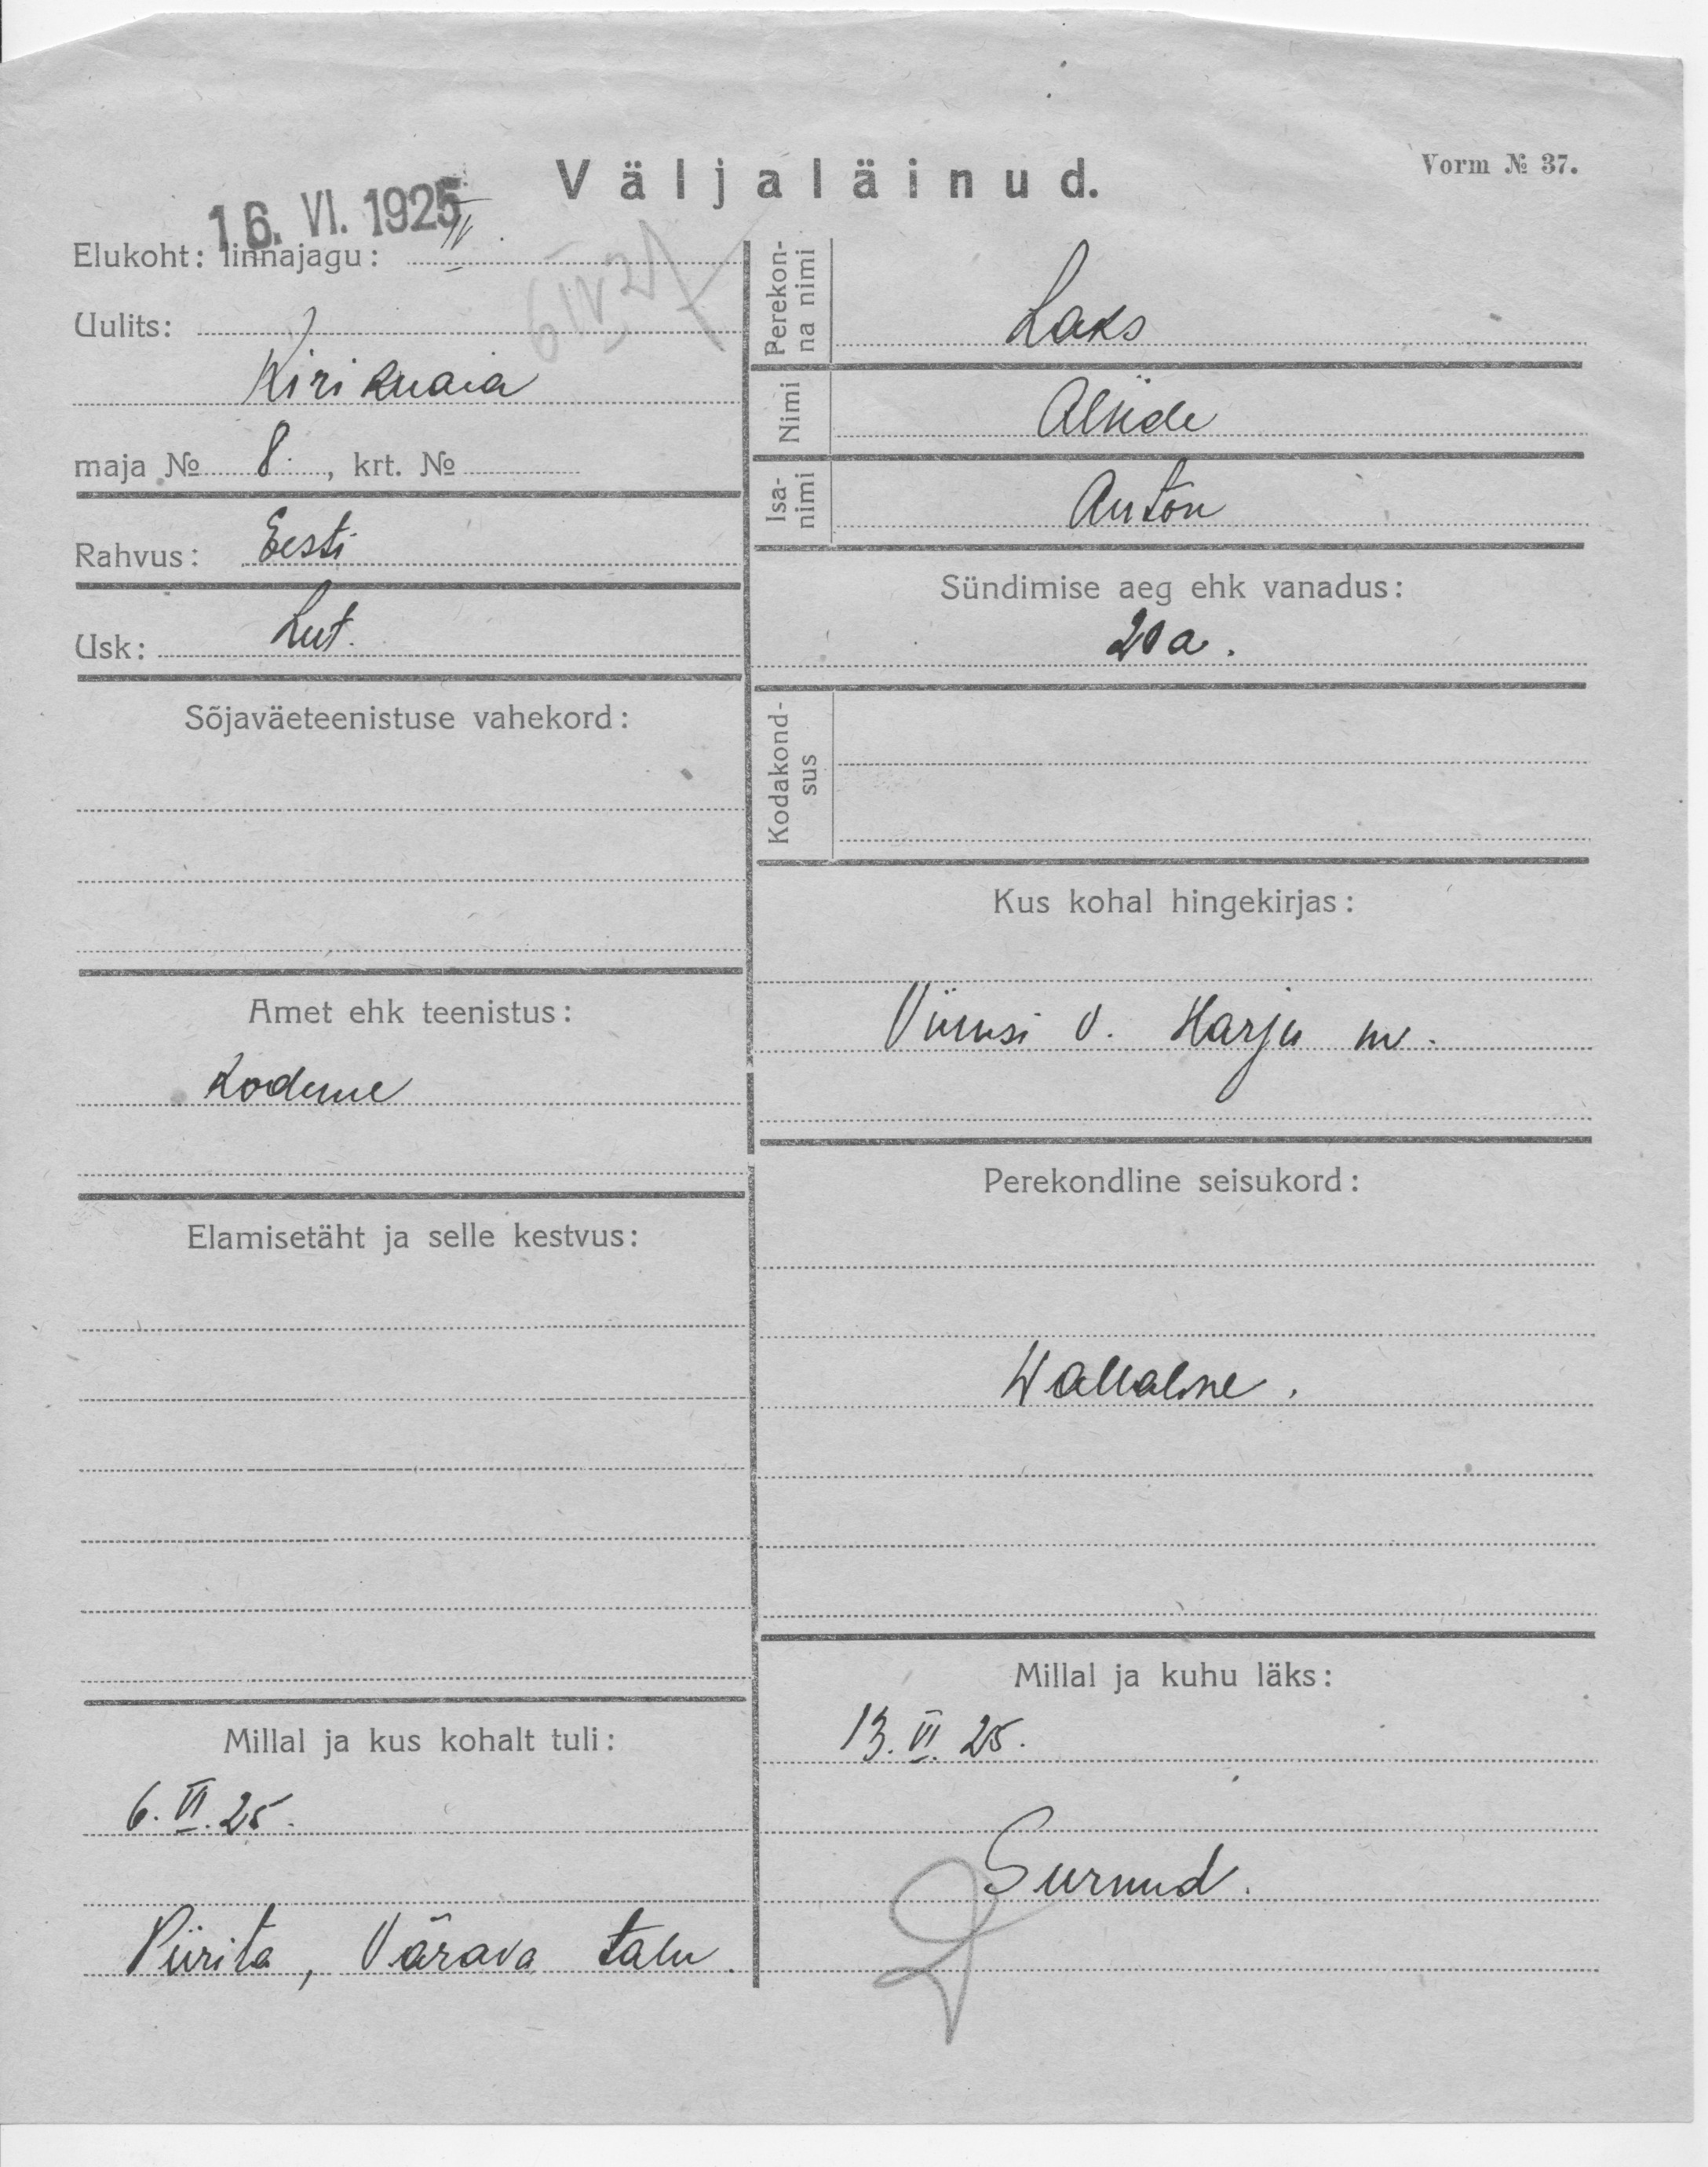 Väljaläinud.
Vorm № 37.
16. VI. 1925
Elukoht: linnajagu: IV.
Uulits:
Kirikuaia
maja № 8. , krt. №
Rahvus: Eesti
Usk: Lut.
Sõjaväeteenistuse vahekord:
Amet ehk teenistus:
Kodune
Elamisetäht ja selle kestvus:
Millal ja kus kohalt tuli:
6. VI. 25.
Piirita, Värava talu.
Perekon-
na nimi
Laks
Nimi
Alide
Isa-
nimi
Anton
Sündimise aeg ehk vanadus:
20 a.
Kodakond-
sus
Kus kohal hingekirjas:
Viimsi v. Harju m.
Perekondline seisukord:
Wallaline.
Millal ja kuhu läks:
13. VI. 25.
Surnud.